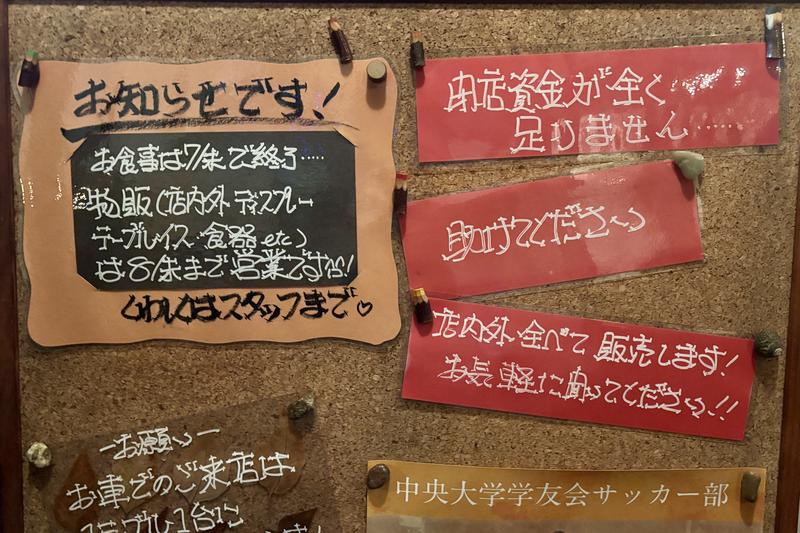 お知らせです!
お食事は7/末で終了.....
物販(店内外ディスプレー
テーブルイス・食器etc)
は8/末まで営業ですが!
くわしくはスタッフまで♡
閉店資金が全く
足りません......
助けてください
店内外全べて販売します!
お気軽に聞ってください!!
-お願い-
お車でのご来店は
1テーブル1台に
中央大学学友会サッカー部